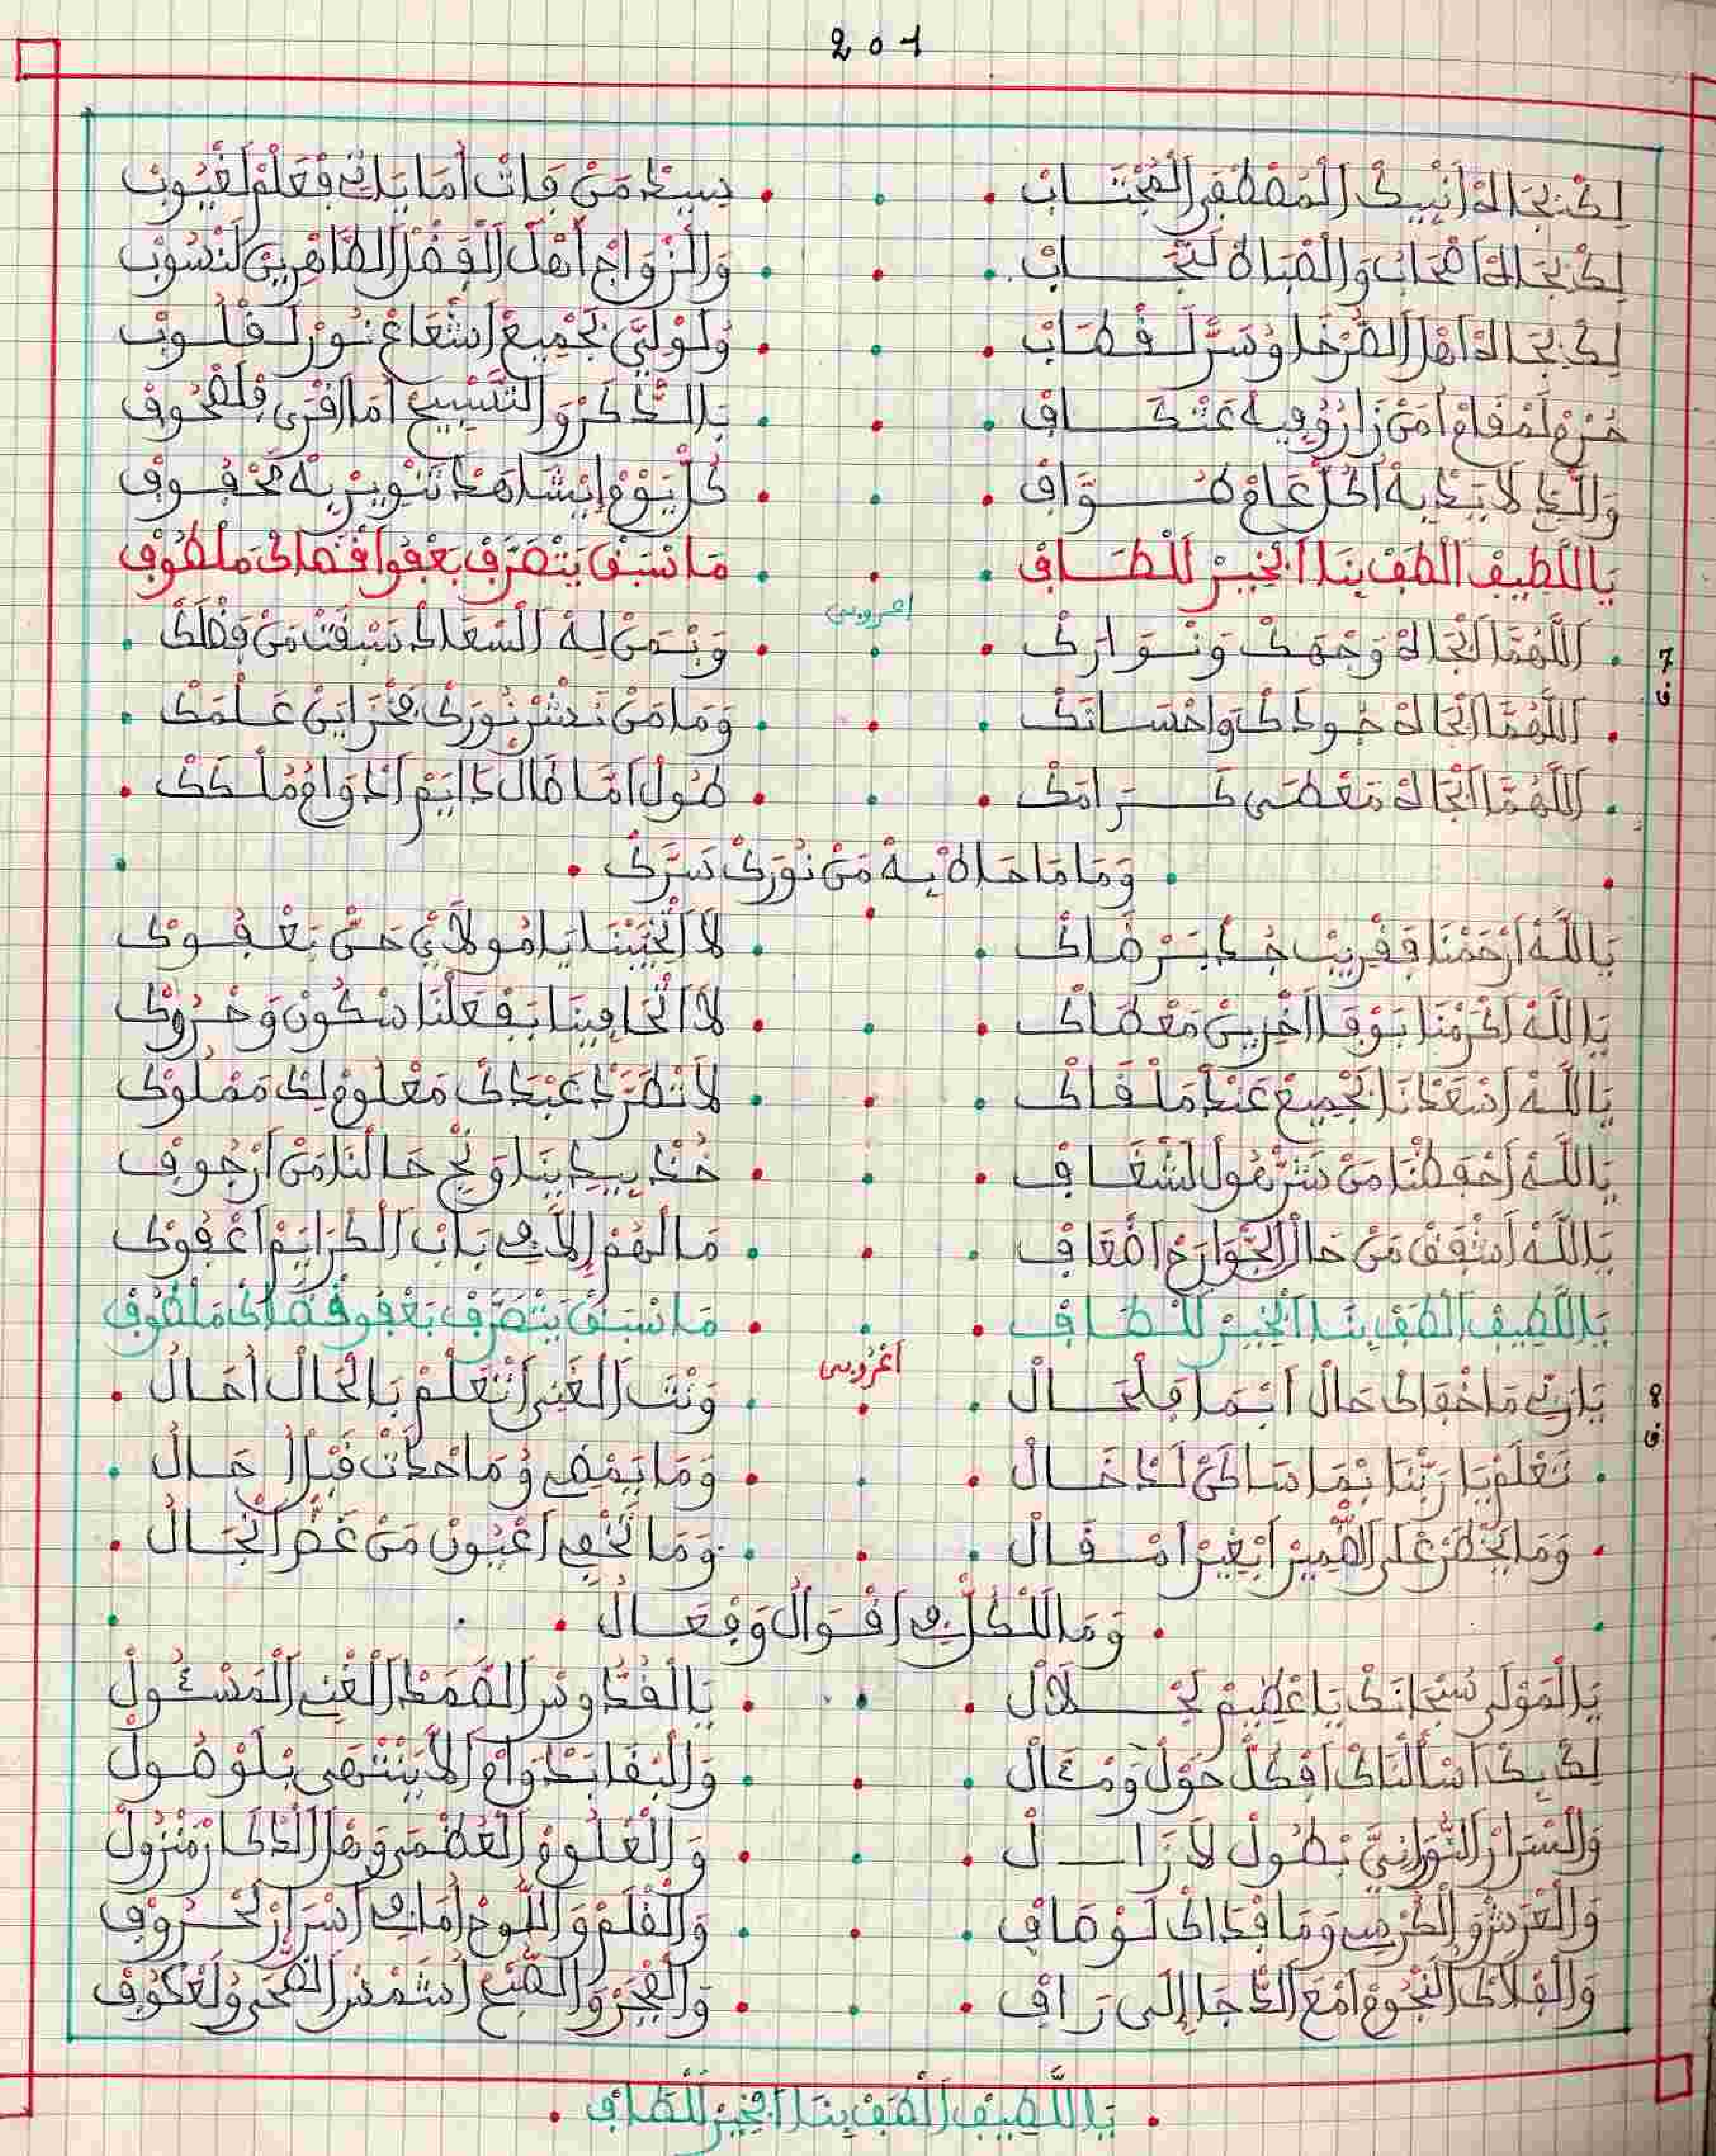 201
لك بجاه انبيك المصطفى المجتاب سيد من فات أما ياتي فعلم لغيوب
لك بجاه اصحاب والقباة لنجاب والزواج أهل الفضل الطاهرين لنسوب
لك بجاه اهل الصرخا وسر لقطاب ولولي بجميع اشعاع نور لقلوب
حرم لمقام أمن زارو فيه عتكاف بالذكر والتسبيح أما اقرى فلصحوف
والذي لايذ به أكل عام طواف كل يوم إيشاهد تنوير به محفوف
يا اللطيف الطف بنا الخبير للطاف ما سبق يتصرف بعفوا قضاك ملطوف
اعروبي
7 ق.
اللهما ابجاه وجهك ونوارك وبمن له السعاد سبقت من فضلك
اللهما ابجاه جودك واحسانك وما من نعش نورك مخزاين علمك
اللهما ابجاه معطى كرامك طول أما طال دايم ادوام ملكك
وما ماحاه به من نورك سرك
يا الله ارحمنا ففريب جد برضاك لا اتخيبنا يا مولاي حن بعفوك
يا الله اكرمنا بوفا اخرين معطاك لا اتجافينا بفعلنا سكون وحروك
يا الله اسعدنا بجميع عند ملقاك لا تطرد عبدك معلوم لك مملوك
يا الله احفظنا من شر هول لشغاف خذ بيدينا ونج حالنا من ارجوف
يا الله اشفق من حال الجوارح اضعاف مالهم إلا في باب الكرايم اعفوك
يا اللطيف الطف بنا الخبير للطاف ما سبق يتصرف بعفو قضاك ملطوف
اعروبي
8 ق.
يا ربي ما خفاك حال ابما فلحال ونت الغني اتعلم بالحال أحال
تعلم يا ربنا بما ساكن لدخال وما يمضي وما حدات قبل احال
وما يخطر على الضمير ابغير امقال وما تخفي اعيون من غض انجال
وما للكل في اقوال وفعال
يا المولى سبحانك يا عظيم لجلال يا القدوس الصمد الغني المسئول
لك بك اسألناك افكل حول ومئال والبقا بدوام لا ينتهى بلوصول
والسرار النوراني بطول لا زال والعلوم العظمى وهل الذكار منزول
والعرش والكرسي وما فداك لوصاف والقلم واللوح أما في اسرار لحروف
والفلاك النجوم امع الدجا إلى راف والفجر والصبح اشمس الضحى ولعكوف
يا اللطيف الطف بنا الخبير للطاف